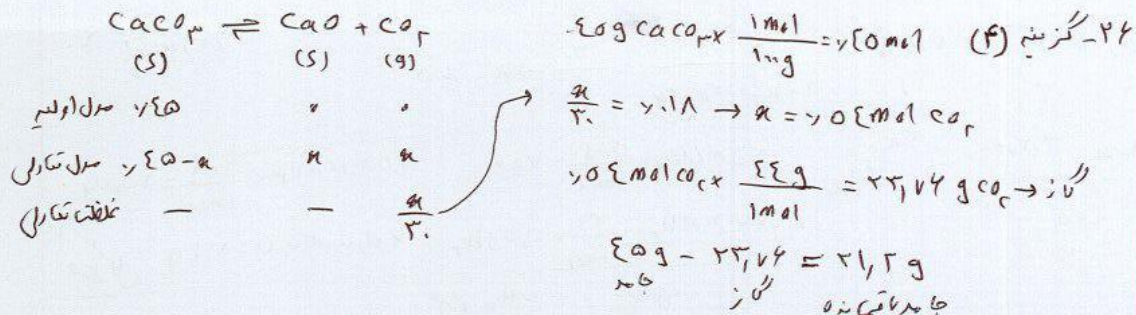 CaCO۳ ⇌ CaO + CO۲
(s) (s) (g)
مول اولیه ۰٫٤۵ ۰ ۰
مول تعادلی ۰٫٤۵-x x x
غلظت تعادلی — — x/۳۰
۲۶- گزینه (۴) ٤۵g CaCO۳ × ۱mol/۱۰۰g = ۰٫٤۵ mol
x/۳۰ = ۰٫۰۱۸ → x = ۰٫۵٤ mol CO۲
۰٫۵٤ mol CO۲ × ٤٤g/۱mol = ۲۳٫۷۶ g CO۲ → گاز
٤۵g - ۲۳٫۷۶ = ۲۱٫۲ g
جامد گاز جامد باقی مانده